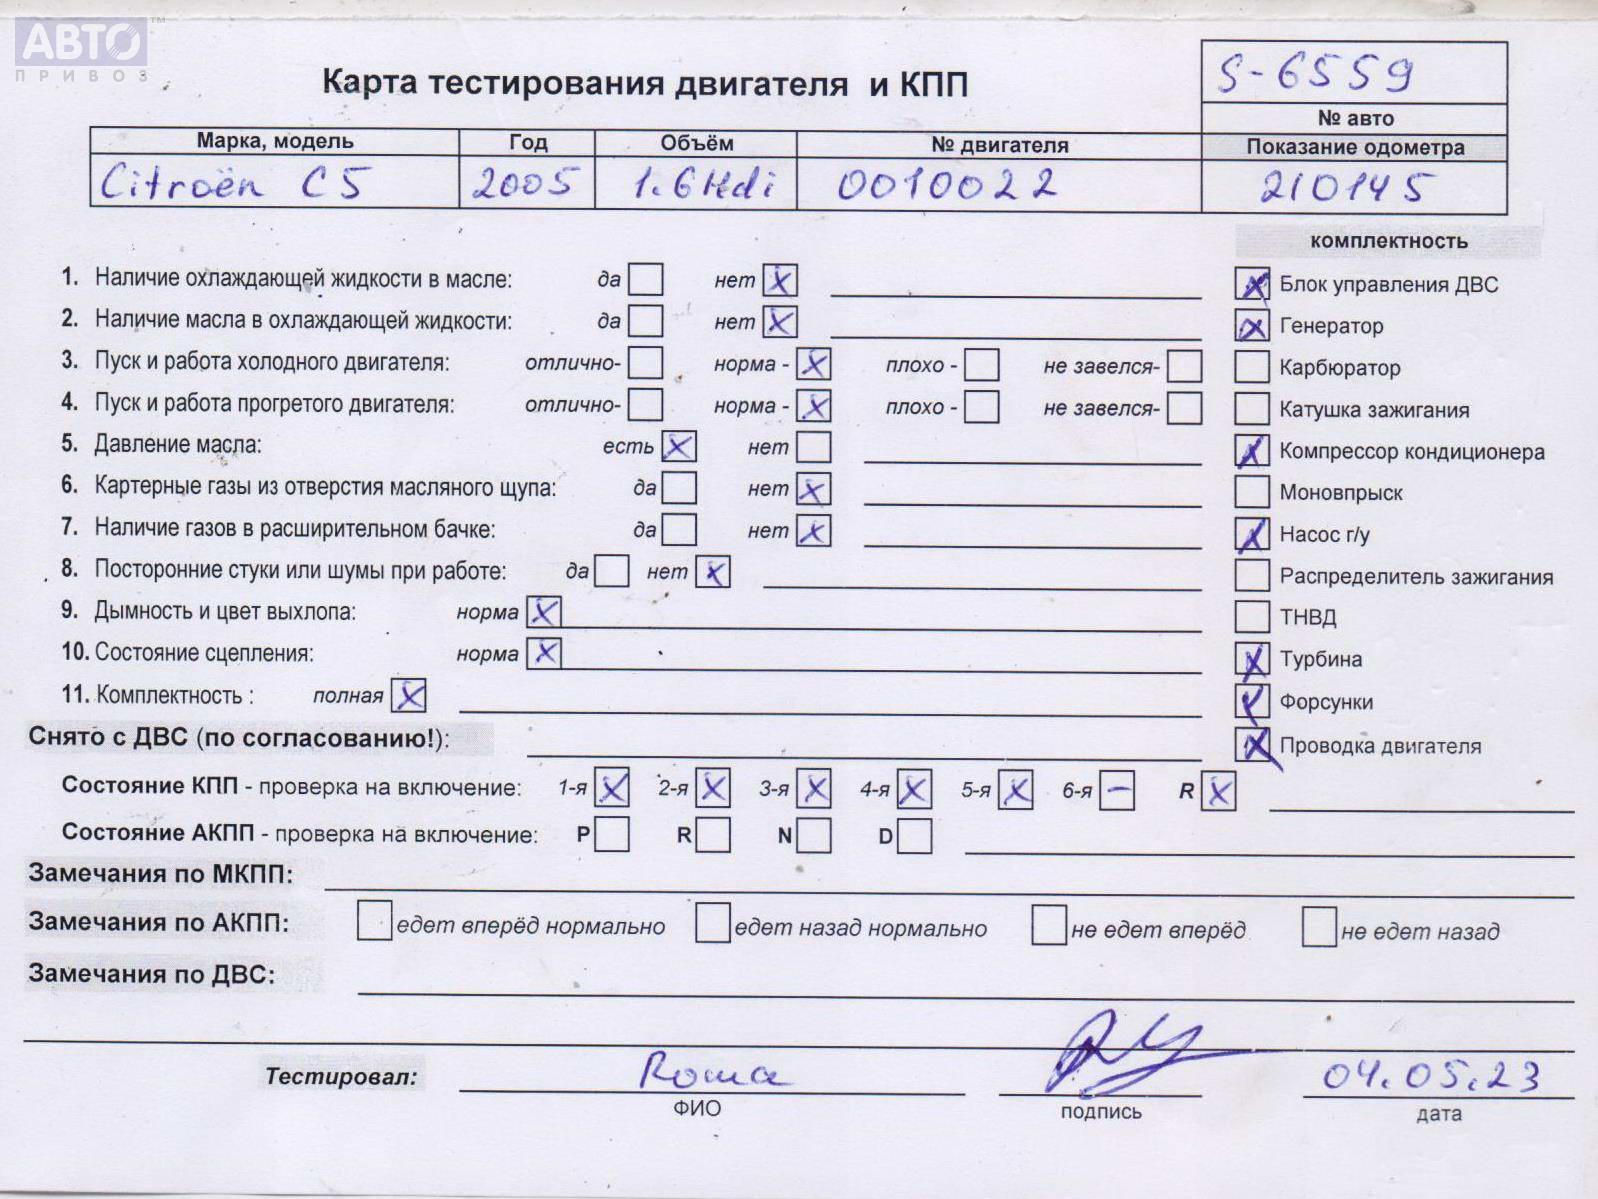 АВТО™
ПРИВОЗ
S-6559
Карта тестирования двигателя и КПП
№ авто
Марка, модель Год Объём № двигателя Показание одометра
Citroën C5 2005 1.6 Hdi 0010022 210145
комплектность
1. Наличие охлаждающей жидкости в масле: да нет X
X Блок управления ДВС
2. Наличие масла в охлаждающей жидкости: да нет X
X Генератор
3. Пуск и работа холодного двигателя: отлично- норма - X плохо - не завелся-
Карбюратор
4. Пуск и работа прогретого двигателя: отлично- норма - X плохо - не завелся-
Катушка зажигания
5. Давление масла: есть X нет
X Компрессор кондиционера
6. Картерные газы из отверстия масляного щупа: да нет X
Моновпрыск
7. Наличие газов в расширительном бачке: да нет X
X Насос г/у
8. Посторонние стуки или шумы при работе: да нет X
Распределитель зажигания
9. Дымность и цвет выхлопа: норма X
ТНВД
10. Состояние сцепления: норма X
X Турбина
11. Комплектность : полная X
X Форсунки
Снято с ДВС (по согласованию!):
X Проводка двигателя
Состояние КПП - проверка на включение: 1-я X 2-я X 3-я X 4-я X 5-я X 6-я – R X
Состояние АКПП - проверка на включение: P R N D
Замечания по МКПП:
Замечания по АКПП: едет вперёд нормально едет назад нормально не едет вперёд не едет назад
Замечания по ДВС:
Тестировал: Roma 04.05.23
ФИО подпись дата